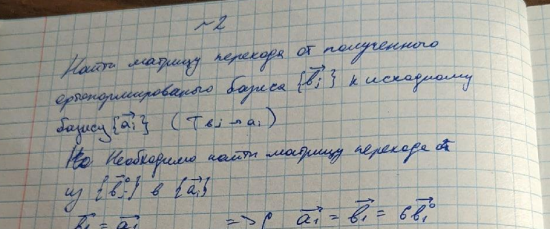 ~2
Найти матрицу перехода от полученного
ортонормированого базиса {b⃗ⱼ} к исходному
базису {a⃗ᵢ} (T bⱼ→aᵢ)
Необходимо найти матрицу перехода
из {b⃗ⱼ°} в {a⃗ᵢ}
b⃗₁ = a⃗₁ => a⃗₁ = b⃗₁ = 6b⃗₁°